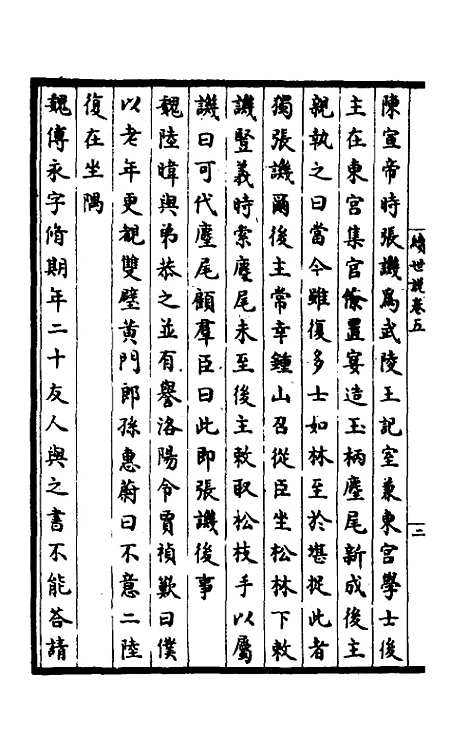 續世說卷五
二
陳宣帝時張譏爲武陵王記室兼東宮學士後
主在東宮集官僚置宴造玉柄麈尾新成後主
親執之曰當今雖復多士如林至於堪捉此者
獨張譏爾後主常幸鍾山召從臣坐松林下敕
譏豎義時索麈尾未至後主敕取松枝手以屬
譏曰可代麈尾顧羣臣曰此即張譏後事
魏陸暐與弟恭之並有譽洛陽令賈禎歎曰僕
以老年更覩雙璧黃門郎孫惠蔚曰不意二陸
復在坐隅
魏傅永字脩期年二十友人與之書不能荅請